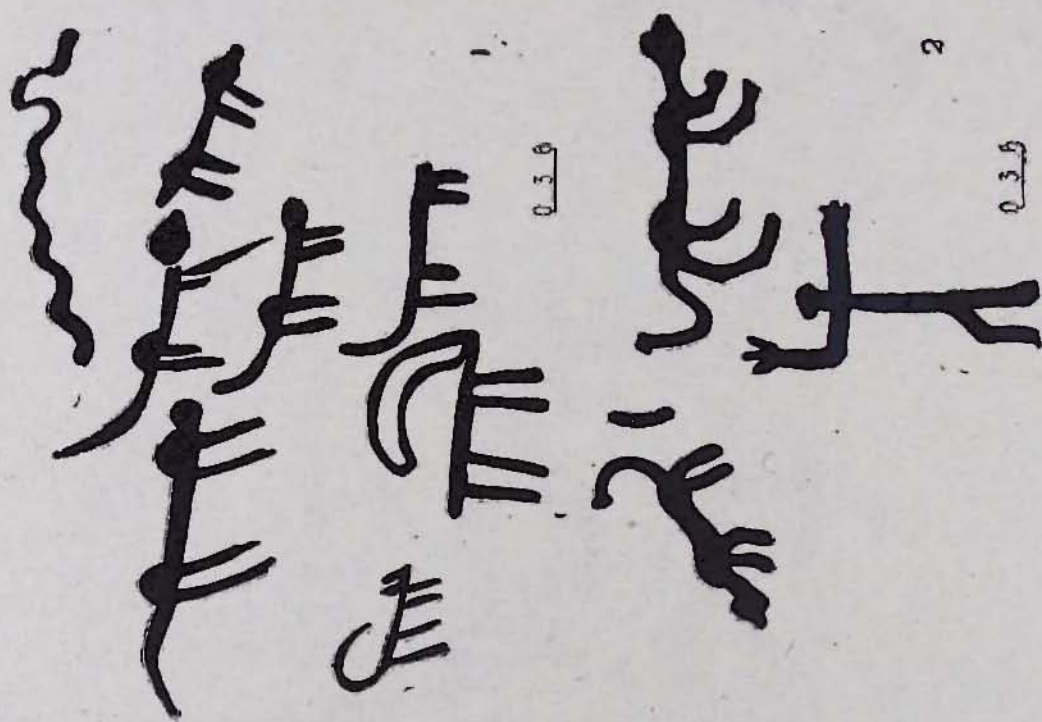 1
0 3 6
2
0 3 6